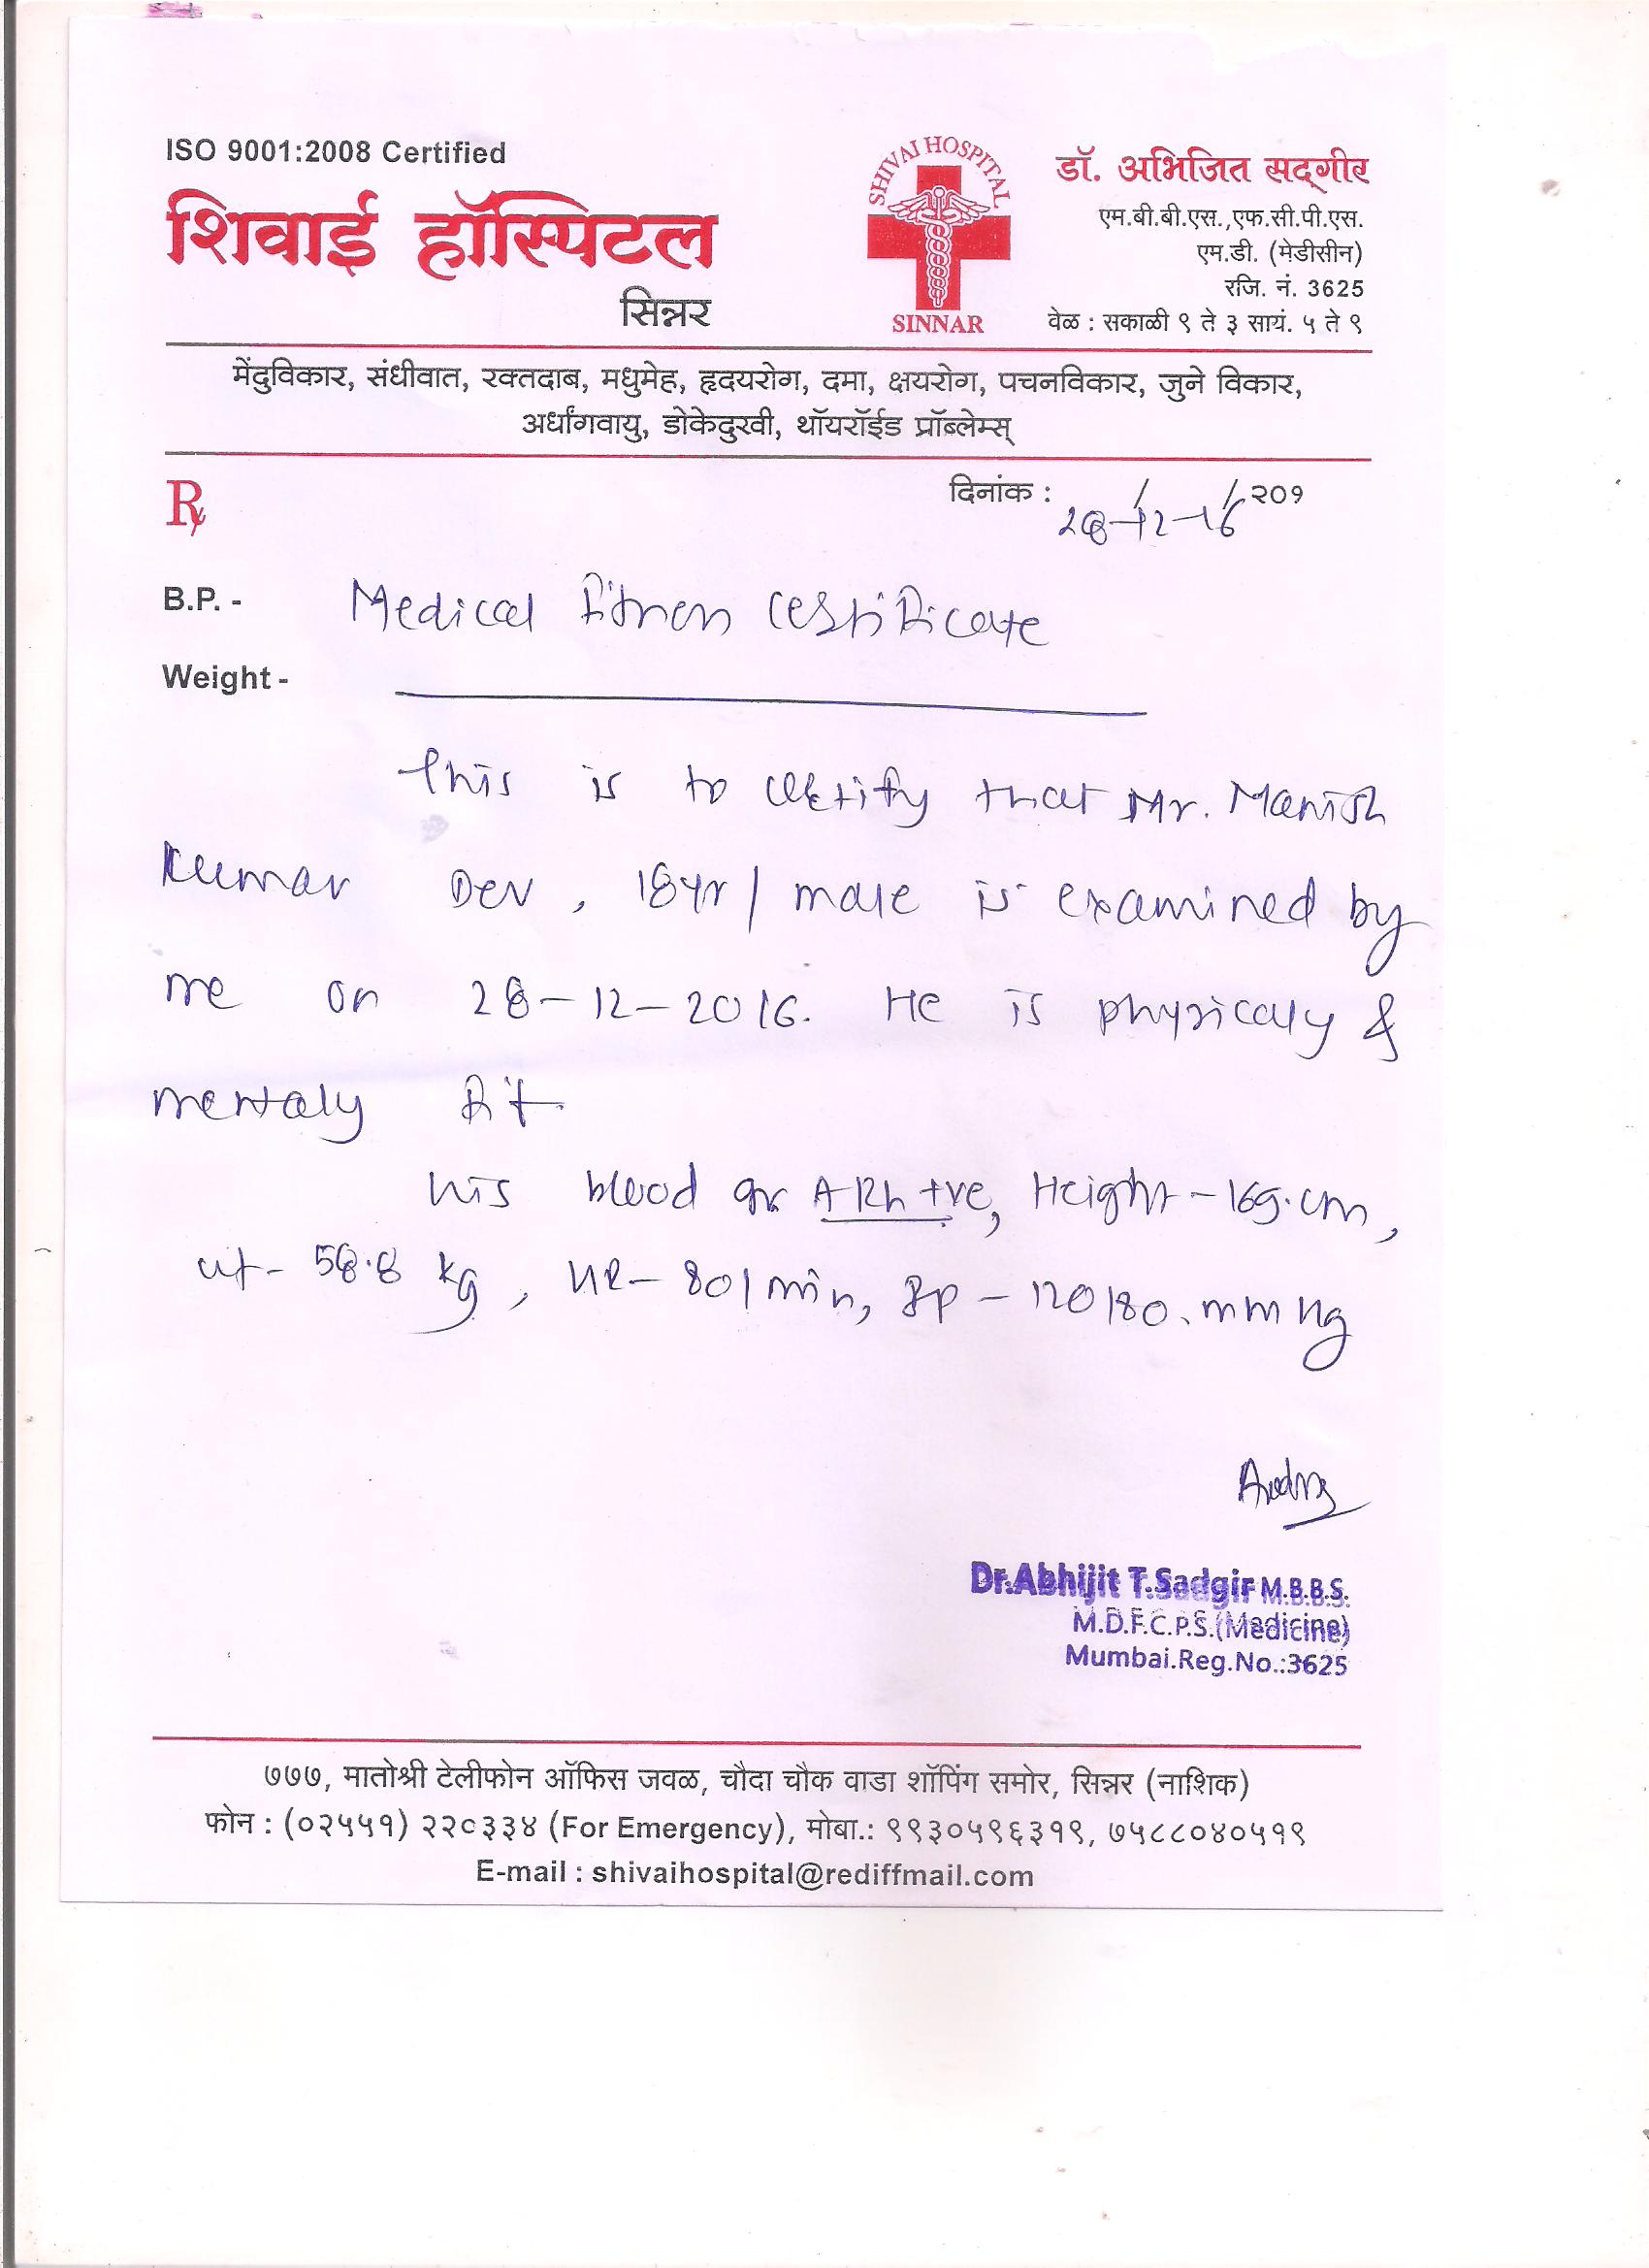 ISO 9001:2008 Certified
शिवाई हॉस्पिटल
सिन्नर
SHIVAI HOSPITAL
SINNAR
डॉ. अभिजित सद्‌गीर
एम.बी.बी.एस.,एफ.सी.पी.एस.
एम.डी. (मेडीसीन)
रजि. नं. 3625
वेळ : सकाळी ९ ते ३ सायं. ५ ते ९
मेंदुविकार, संधीवात, रक्तदाब, मधुमेह, हृदयरोग, दमा, क्षयरोग, पचनविकार, जुने विकार,
अर्धांगवायु, डोकेदुखी, थॉयरॉईड प्रॉब्लेम्स्
Rx
दिनांक : / / २०१
28-12-16
B.P. - Medical fitness certificate
Weight -
This is to certify that Mr. Manish
Kumar Dev, 18yr/ male is examined by
me on 28-12-2016. He is physicaly &
mentaly fit
his blood gr A Rh +ve, Height - 169.cm,
wt- 58.8 kg, HR- 80/min, Bp - 120/80.mmHg
Dr.Abhijit T.Sadgir M.B.B.S.
M.D.F.C.P.S.(Medicine)
Mumbai.Reg.No.:3625
७७७, मातोश्री टेलीफोन ऑफिस जवळ, चौदा चौक वाडा शॉपिंग समोर, सिन्नर (नाशिक)
फोन : (०२५५१) २२०३३४ (For Emergency), मोबा.: ९९३०५९६३१९, ७५८८०४०५१९
E-mail : shivaihospital@rediffmail.com